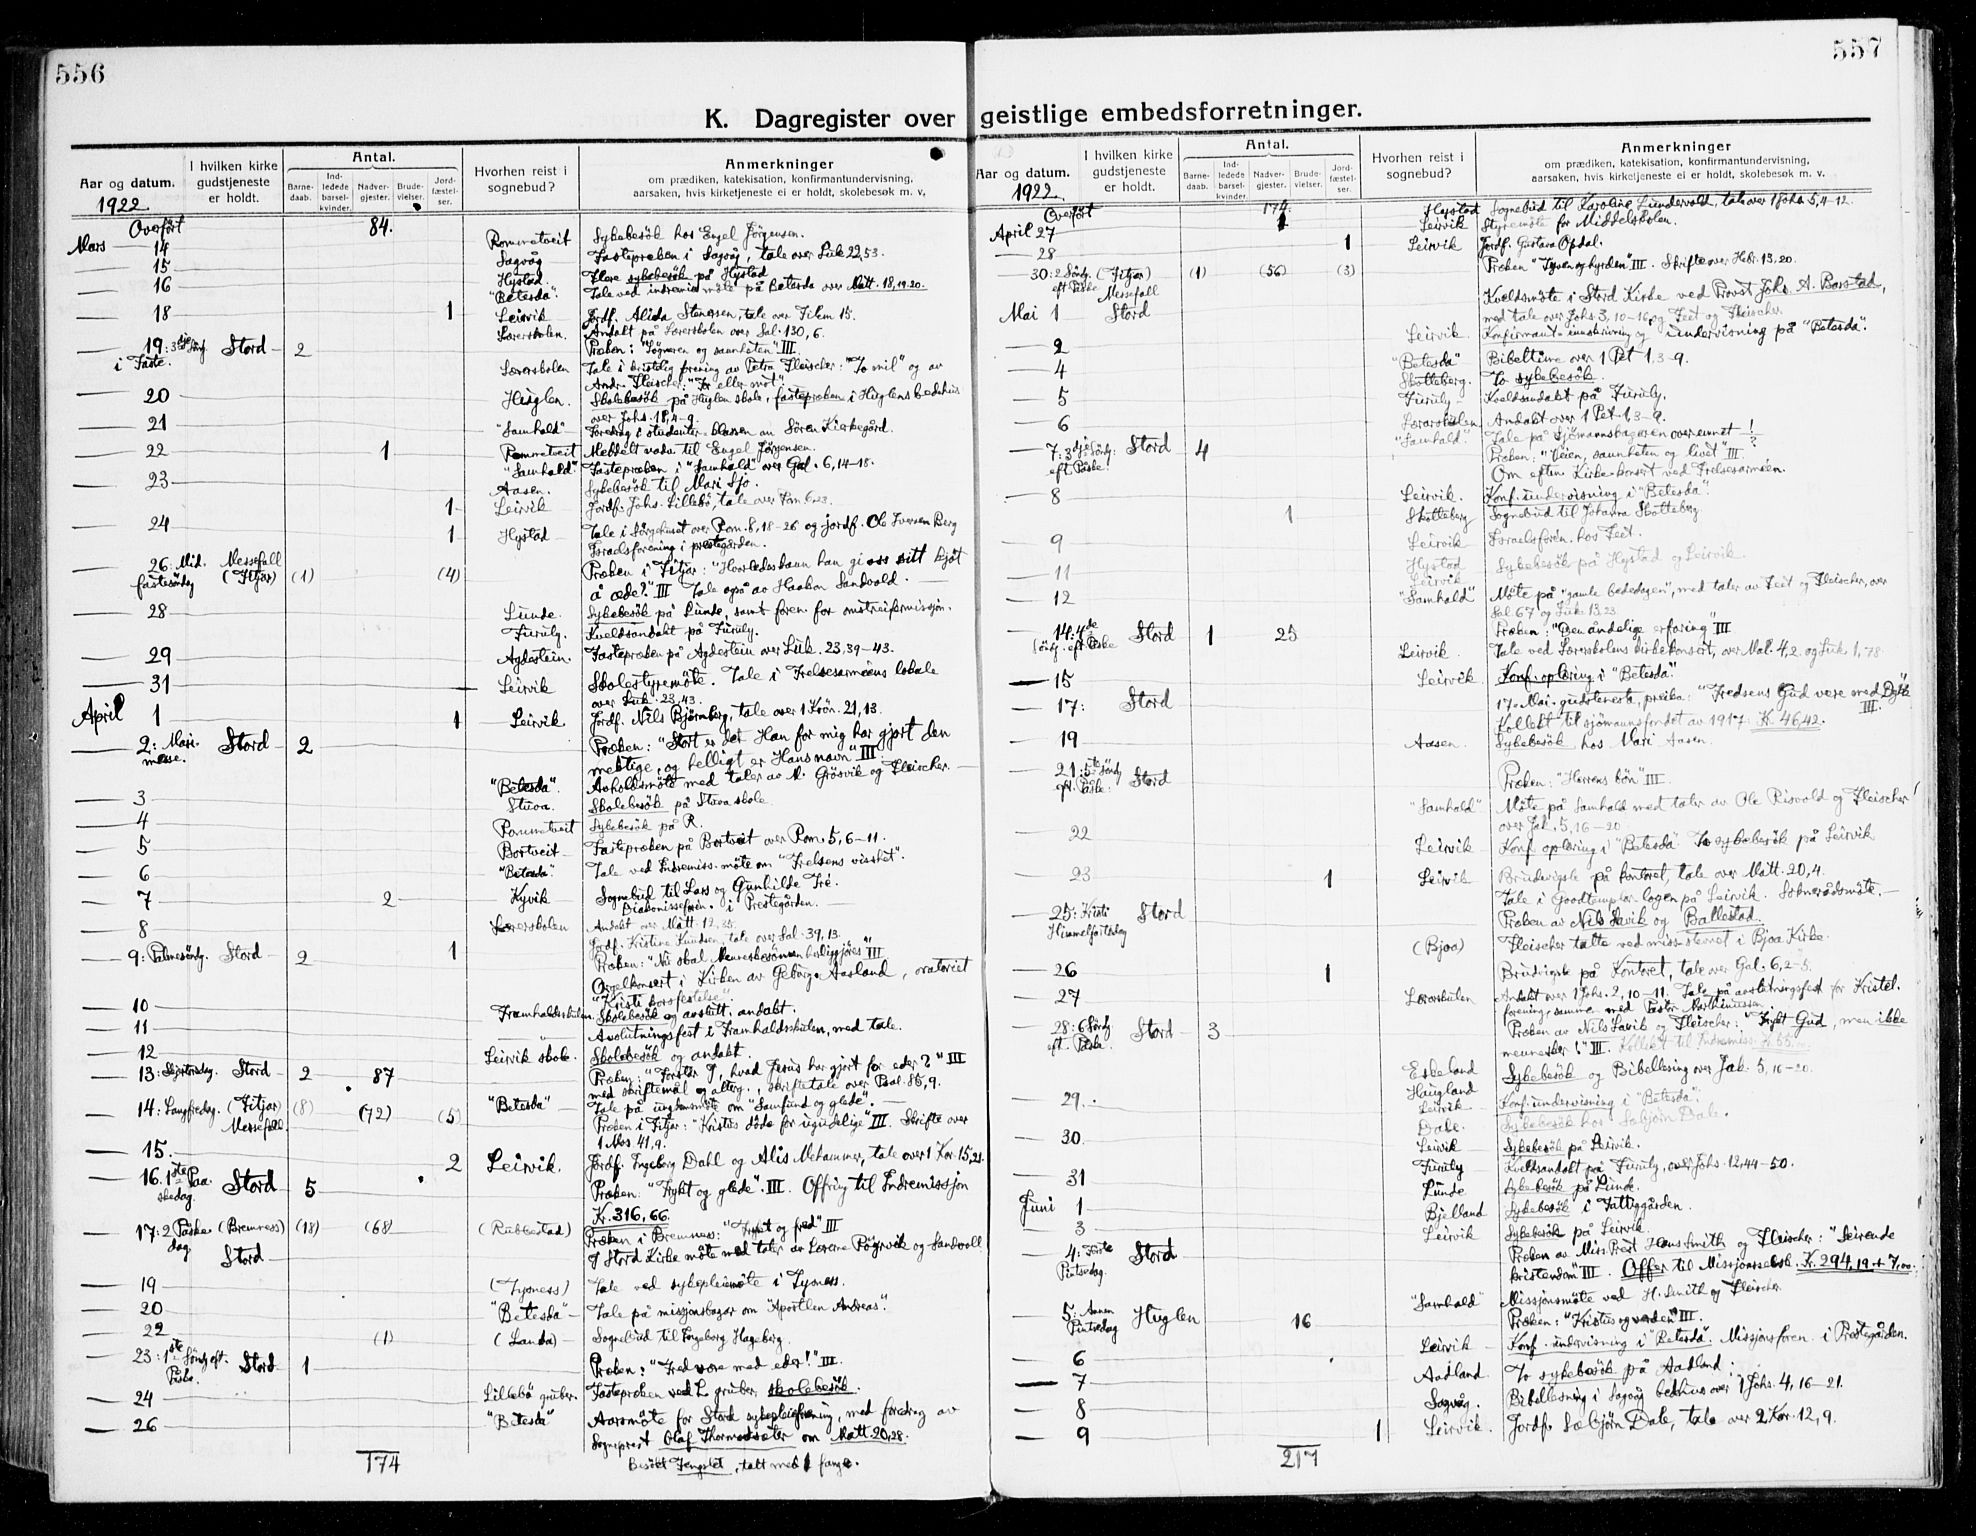 556
K. Dagregister over
Aar og datum.
1922.
I hvilken kirke gudstjeneste er holdt.
Antal.
Barne-daab.
Ind-ledede barsel-kvinder.
Nadver-gjester.
Brude-vielser.
Jord-fæstel-ser.
Hvorhen reist i sognebud?
Anmerkninger
om prædiken, katekisation, konfirmantundervisning,
aarsaken, hvis kirketjeneste ei er holdt, skolebesøk m. v.
Overført 84.
Mars — 14 Rommetveit Sykebesök hos Engel Jörgensen.
— 15 Sagvåg Fastepræken i Sagvåg, tale over Luk 22,53.
— 16 Hystad Flere sykebesök på Hystad
"Betesda". Tale ved indremis. möte på Betesda over Matt. 18,19.20.
— 18 1 Leirvik Jordf. Alida Stenersen, tale over Filem 15.
Lærerskolen. Andakt på Lærerskolen over Sal. 130, 6.
— 19: 3dje Sönd. Stord 2 Præken: "Lögneren og sannheten" III.
i Faste. Lærerskolen Tale i kristelig forening av Petra Fleischer: "To mil" og av
Andr. Fleischer: "For eller mot".
— 20 Huglen. Skolebesök på Huglen skole, fastepræken i Huglens bedehus
over Johs. 18, 4-9.
— 21 "Samhald" Foredrag i studenter-klassen om Sören Kierkegård.
— 22 1 Rommetveit Meddelt nadv. til Engel Jörgensen.
"Samhald." Fastepræken i "Samhald" over Gal. 6, 14-18.
— 23 Aasen. Sykebesök til Mari Sjo.
1 Leirvik Jordf. Johs. Lillebö, tale over Rom 6.23.
— 24 1 Hystad Tale i Sörgehuset over Rom. 8, 18-26 og jordf. Ole Iversen Berg
Israelsforening i prestegården.
— 26: Mid. Messefall Præken i Fitjar: "Hvorledes kann han gi oss sitt kjöt
fastesöndg (Fitjar) (1) (4) å æde?" III Tale også av Haakon Sandvold.
— 28 Lunde. Sykebesök på Lunde, samt foren. for omstreifermissjon.
Furuly. Kveldsandakt på Furuly.
— 29 Agdestein. Fastepræken på Agdestein over Luk. 23, 39-43.
— 31 Leirvik Skolestyremöte. Tale i Frelsesarméens lokale
over Luk. 23,43.
April 1 1 Leirvik Jordf. Nils Björnberg, tale over 1 Krön. 21, 13.
— 2: Mari- Stord 2 Præken: "Stort er det Han for mig har gjort den
messe. mektige, og helligt er Hans navn" III
"Betesda". Avholdsmöte med taler av A. Grösvik og Fleischer.
— 3 Stuva. Skolebesök på Stuva skole.
— 4 Rommetveit Sykebesök på R.
— 5 Bortveit Fastepræken på Bortveit over Rom. 5, 6-11.
— 6 "Betesda". Tale ved Indremiss. möte om "Frelsens visshet".
— 7 2 Kyvik Sognebud til Lars og Gunhilde Tré.
Diakonisseforen. i Prestegården.
— 8 Lærerskolen Andakt over Matt. 12, 35.
Jordf. Kristine Knudsen, tale over Sal. 39, 13.
— 9: Palmesöndg. Stord 2 1 Præken: "Nu skal Menneskesönnen herliggjöres" III
Orgelkonsert i Kirken av Geburg Aasland, oratoriet
"Kristi korsfestelse".
— 10 Framhaldsskulen. Skolebesök og avslutt. andakt.
— 11 Avslutningsfest i Framhaldsskulen, med tale.
— 12 Leirvik skole. Skolebesök og andakt.
— 13: Skjærtorsdag. Stord 2 87 Præken: "Forstår I, hvad Jesus har gjort for eder?" III
med skriftemål og alterg., skriftetale over Psal. 86, 9.
— 14: Langfredag. (Fitjar) (8) (72) (5) "Betesda" Tale på ungdomsmöte om "Samfund og glede".
Messefall Præken i Fitjar: "Kristus döde for ugudelige" III. Skrifte over
1 Mos. 41, 9.
— 15. 2 Leirvik. Jordf. Ingeborg Dahl og Alis Mehammer, tale over 1 Kor. 15, 21.
— 16. 1ste Paa- Stord 5 Præken: "Frykt og glede". III. Offring til Indremissjon
skedag. Kr. 316, 66.
— 17: 2 Påske- (Bremnes) (18) (68) (Rubbestad) Præken i Bremnes: "Frykt og fred" III
dag Stord I Stord Kirke möte med taler av Lærerne Rögrvik og Sandvoll
— 19 (Tysness) Tale ved sykepleiemöte i Tysness.
— 20 "Betesda" Tale på missjonsbazar om "Apostlen Andreas".
— 22 (1) (Landa) Sognebud til Ingeborg Hageberg.
— 23: 1ste Sönd. eft. Stord 1 Præken: "Fred være med eder!" III.
Påske.
— 24 Lillebö gruber. Fastepræken ved L. gruber, skolebesök.
— 26 "Betesda" Aarsmöte for Stord sykepleieforening, med foredrag av
Sogneprest Olaf Thormodsæter om Matt. 20, 28.
174 Besökt Fengslet, talt med 1 fange.
557
geistlige embedsforretninger.
Aar og datum.
1922.
I hvilken kirke gudstjeneste er holdt.
Antal.
Barne-daab.
Ind-ledede barsel-kvinder.
Nadver-gjester.
Brude-vielser.
Jord-fæstel-ser.
Hvorhen reist i sognebud?
Anmerkninger
om prædiken, katekisation, konfirmantundervisning,
aarsaken, hvis kirketjeneste ei er holdt, skolebesøk m. v.
Overført 174. Hystad Sognebud til Karoline Lundervold, tale over 1 Johs. 5, 4-12.
April 27 1 Leirvik Styremöte for Middelskolen.
— 28 1 Leirvik Jordf. Gustava Opdal.
— 30: 2 Söndg. (Fitjar) (1) (56) (3) Præken "Tyven og hyrden" III. Skrifte over Hebr. 13, 20.
eft Påske Messefall
Mai 1 Stord Kveldsmöte i Stord Kirke ved Provst Johs. A. Barstad,
med tale over Johs 3, 10-16, og Feit og Fleischer.
— 2 Leirvik. Konfirmant-innskrivning og undervisning på "Betesda".
— 4 "Betesda" Bibeltime over 1 Pet 1, 3-9.
Skotteberg. To sykebesök.
— 5 Furuly Kveldsandakt på Furuly.
— 6 Lærerskolen Andakt over 1 Pet. 1, 3-9.
"Samhald". Tale på Sjömannsbazaren over emnet !?
— 7: 3dje Söndg. Stord 4 Præken: "Veien, sannheten og livet" III.
eft. Påske! Om eftm. Kirke-konsert ved Frelsesarméen.
— 8 Leirvik. Konf. undervisning i "Betesda".
1 Skotteberg Sognebud til Johanna Skotteberg.
— 9 Leirvik Israelsforen. hos Feit.
— 11 Hystad Sykebesök på Hystad og Leirvik.
Leirvik
— 12 "Samhald" Möte på "gamle bededagen", med taler av Feit og Fleischer, over
Sal. 67 og Luk. 13, 23
— 14: 4de Stord 1 25 Præken: "Den åndelige erfaring" III
Söndg. eft. Påske Leirvik. Tale ved Lærerskolens kirkekonsert, over Mal. 4, 2 og Luk. 1, 78.
— 15 Leirvik Konf. oplæring i "Betesda".
— 17: Stord 17. Mai-gudsteneste, preika: "Fredsens Gud vere med Dykk" III.
Kollekt til sjömannsfondet av 1917: K. 46,42.
— 19 Aasen. Sykebesök hos Mari Aasen.
— 21: 5te Söndg Stord Præken: "Herrens bön" III
eft. Påske: "Samhald" Möte på Samhald med taler av Ole Risvold og Fleischer
over Jak. 5, 16-20
— 22 Leirvik Konf. oplæring i "Betesda" To sykebesök på Leirvik
— 23 1 Leirvik Brudevigsle på kontoret, tale over Matt. 20, 4.
Tale i Goodtemplar-logen på Leirvik. Soknerådsmöte.
— 25: Kristi Stord Præken av Nils Lavik og Ballestad.
Himmelfartsdag (Bjoa) Fleischer talte ved miss. stevnet i Bjoa Kirke.
— 26 1 Brudvigsle på Kontoret, tale over Gal. 6, 2-5.
— 27 Lærerskulen Andakt over 1 Johs. 2, 10-11. Tale på avslutningsfest for Kristel.
forening, samme med Pastor Marthinussen
— 28: 6 Söndg Stord 3 Præken av Nils Lavik og Fleischer: "Frykt Gud, men ikke
eft. Påske mennesker!" III. Kollekt til Indremiss. K. 65.
Eskeland Sykebesök og Bibellesing over Jak. 5, 16-20.
Haugland
— 29. Leirvik Konf. undervisning i "Betesda".
Dale. Sykebesök hos Sæbjörn Dale.
— 30. Leirvik Sykebesök på Leirvik.
Furuly Kveldsandakt på Furuly, over Johs. 12, 44-50.
— 31 Lunde Sykebesök på Lunde.
Juni 1 Bjelland Sykebesök i Fattiggården.
— 3 Leirvik Sykebesök på Leirvik
— 4: Förste Stord Præken av Miss. Prest Hans Smith og Fleischer: "Seirende
Pintsedag. kristendom" III. Offer til Missjonsselsk. Kr. 294, 19 + 7,00.
"Samhald" Missjonsmöte ved H. Smith og Fleischer.
5: Annen Huglen 16 Præken: "Kristus og verden" III.
Pintsedag Leirvik Konf. undervisning i "Betesda". Missjonsforen. i Prestegården.
— 6 Aadland To sykebesök på Aadland.
— 7 Sagvåg. Bibellesning i Sagvåg bedehus over 1 Johs. 4, 16-21.
— 8
— 9 1 Leirvik. Jordf. Sæbjörn Dale, tale over 2 Kor. 12, 9.
217